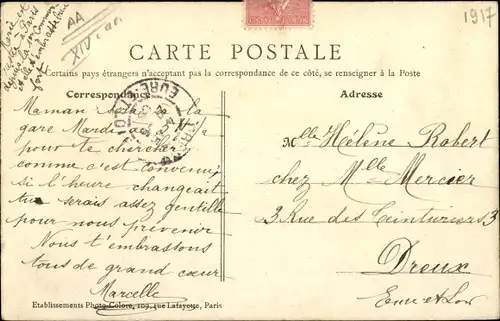 1917
AA
XIV arr
Marie est
à Paris
depuis la 1ère Commun
et elle t'embrasse bien
fort
CARTE POSTALE
Certains pays étrangers n'acceptant pas la correspondance de ce côté, se renseigner à la Poste
Correspondance
Adresse
EURE-ET-LOIR
Maman sera à la
gare Mardi
pour te chercher
comme c'est convenu,
si l'heure changeait
tu serais assez gentille
pour nous prévenir
Nous t'embrassons
tous de grand cœur
Marcelle
Melle Hélène Robert
chez Melle Mercier
3 Rue des Teinturiers 3
Dreux
Eure et Loir
Etablissements Photo-Colore, 109, rue Lafayette, Paris